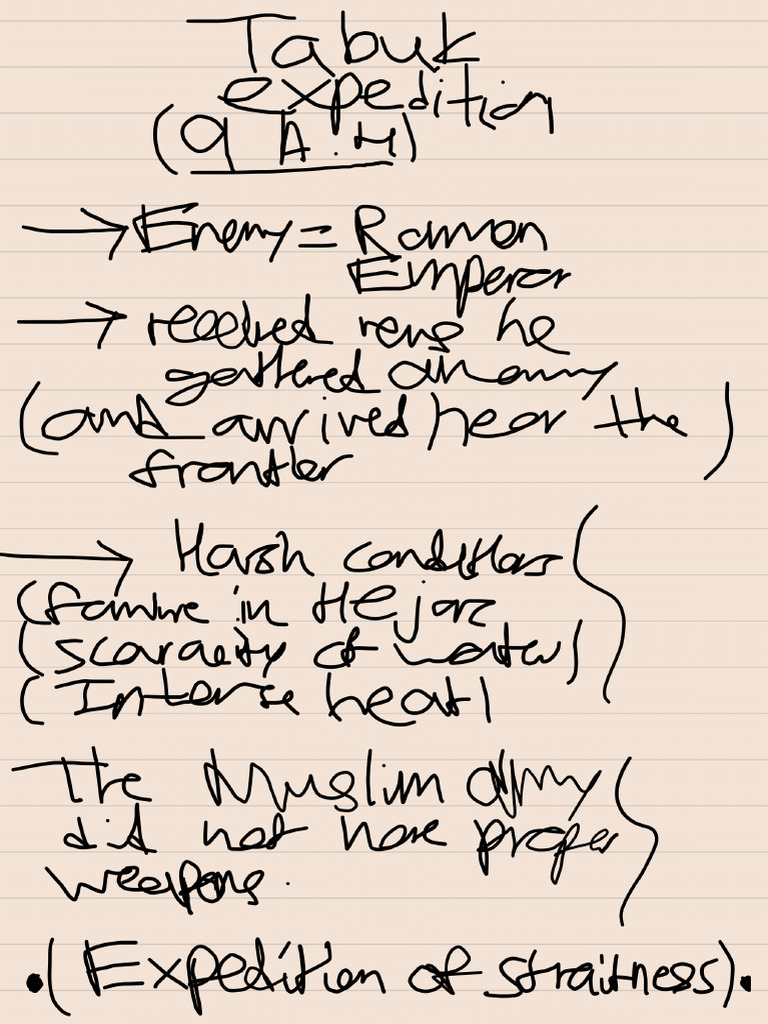 Tabuk
expedition
(9 A.H)
→ Enemy = Roman
Emperor
→ received news he
gathered an army
(and arrived near the)
frontier
→ Harsh conditions
(famine in Hejaz
(scarcity of water)
(Intense heat)
The Muslim army
did not have proper
weapons.
•(Expedition of straitness).